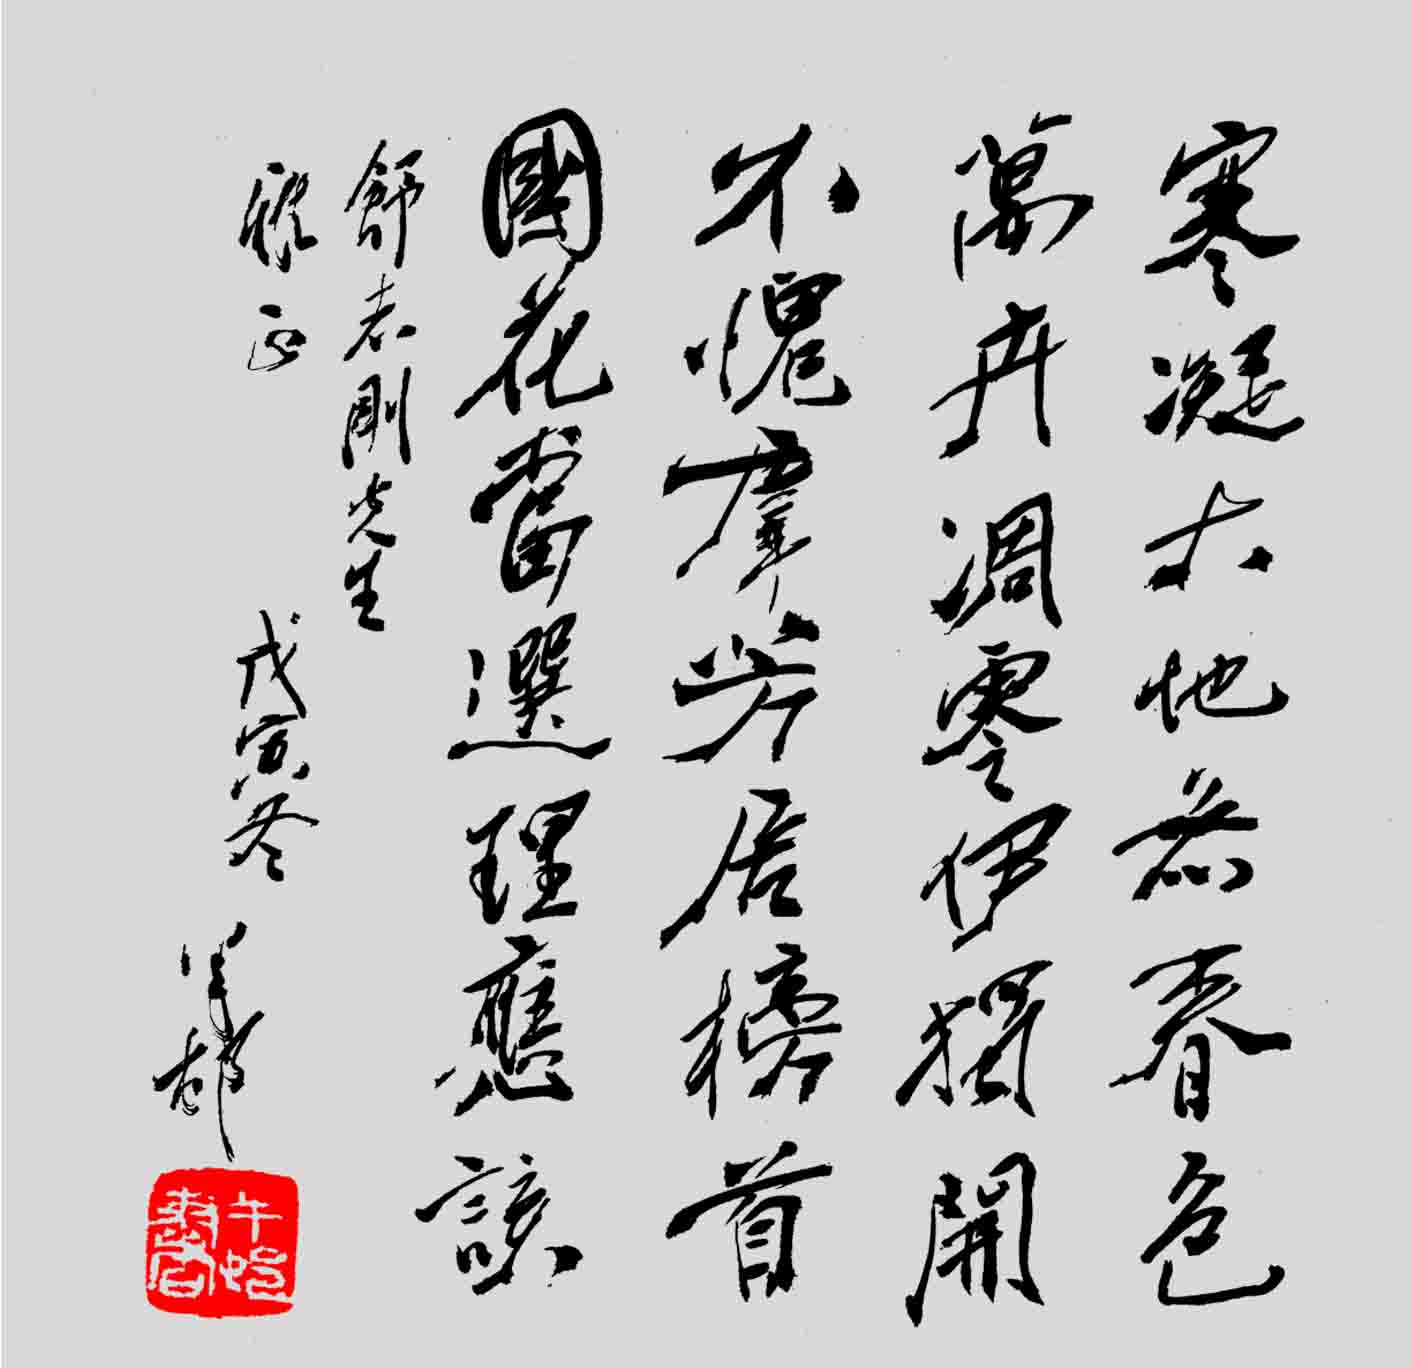 寒凝大地無春色
萬卉凋零伊獨開
不愧羣芳居榜首
國花當選理應該
舒志剛先生
雅正
戊寅冬